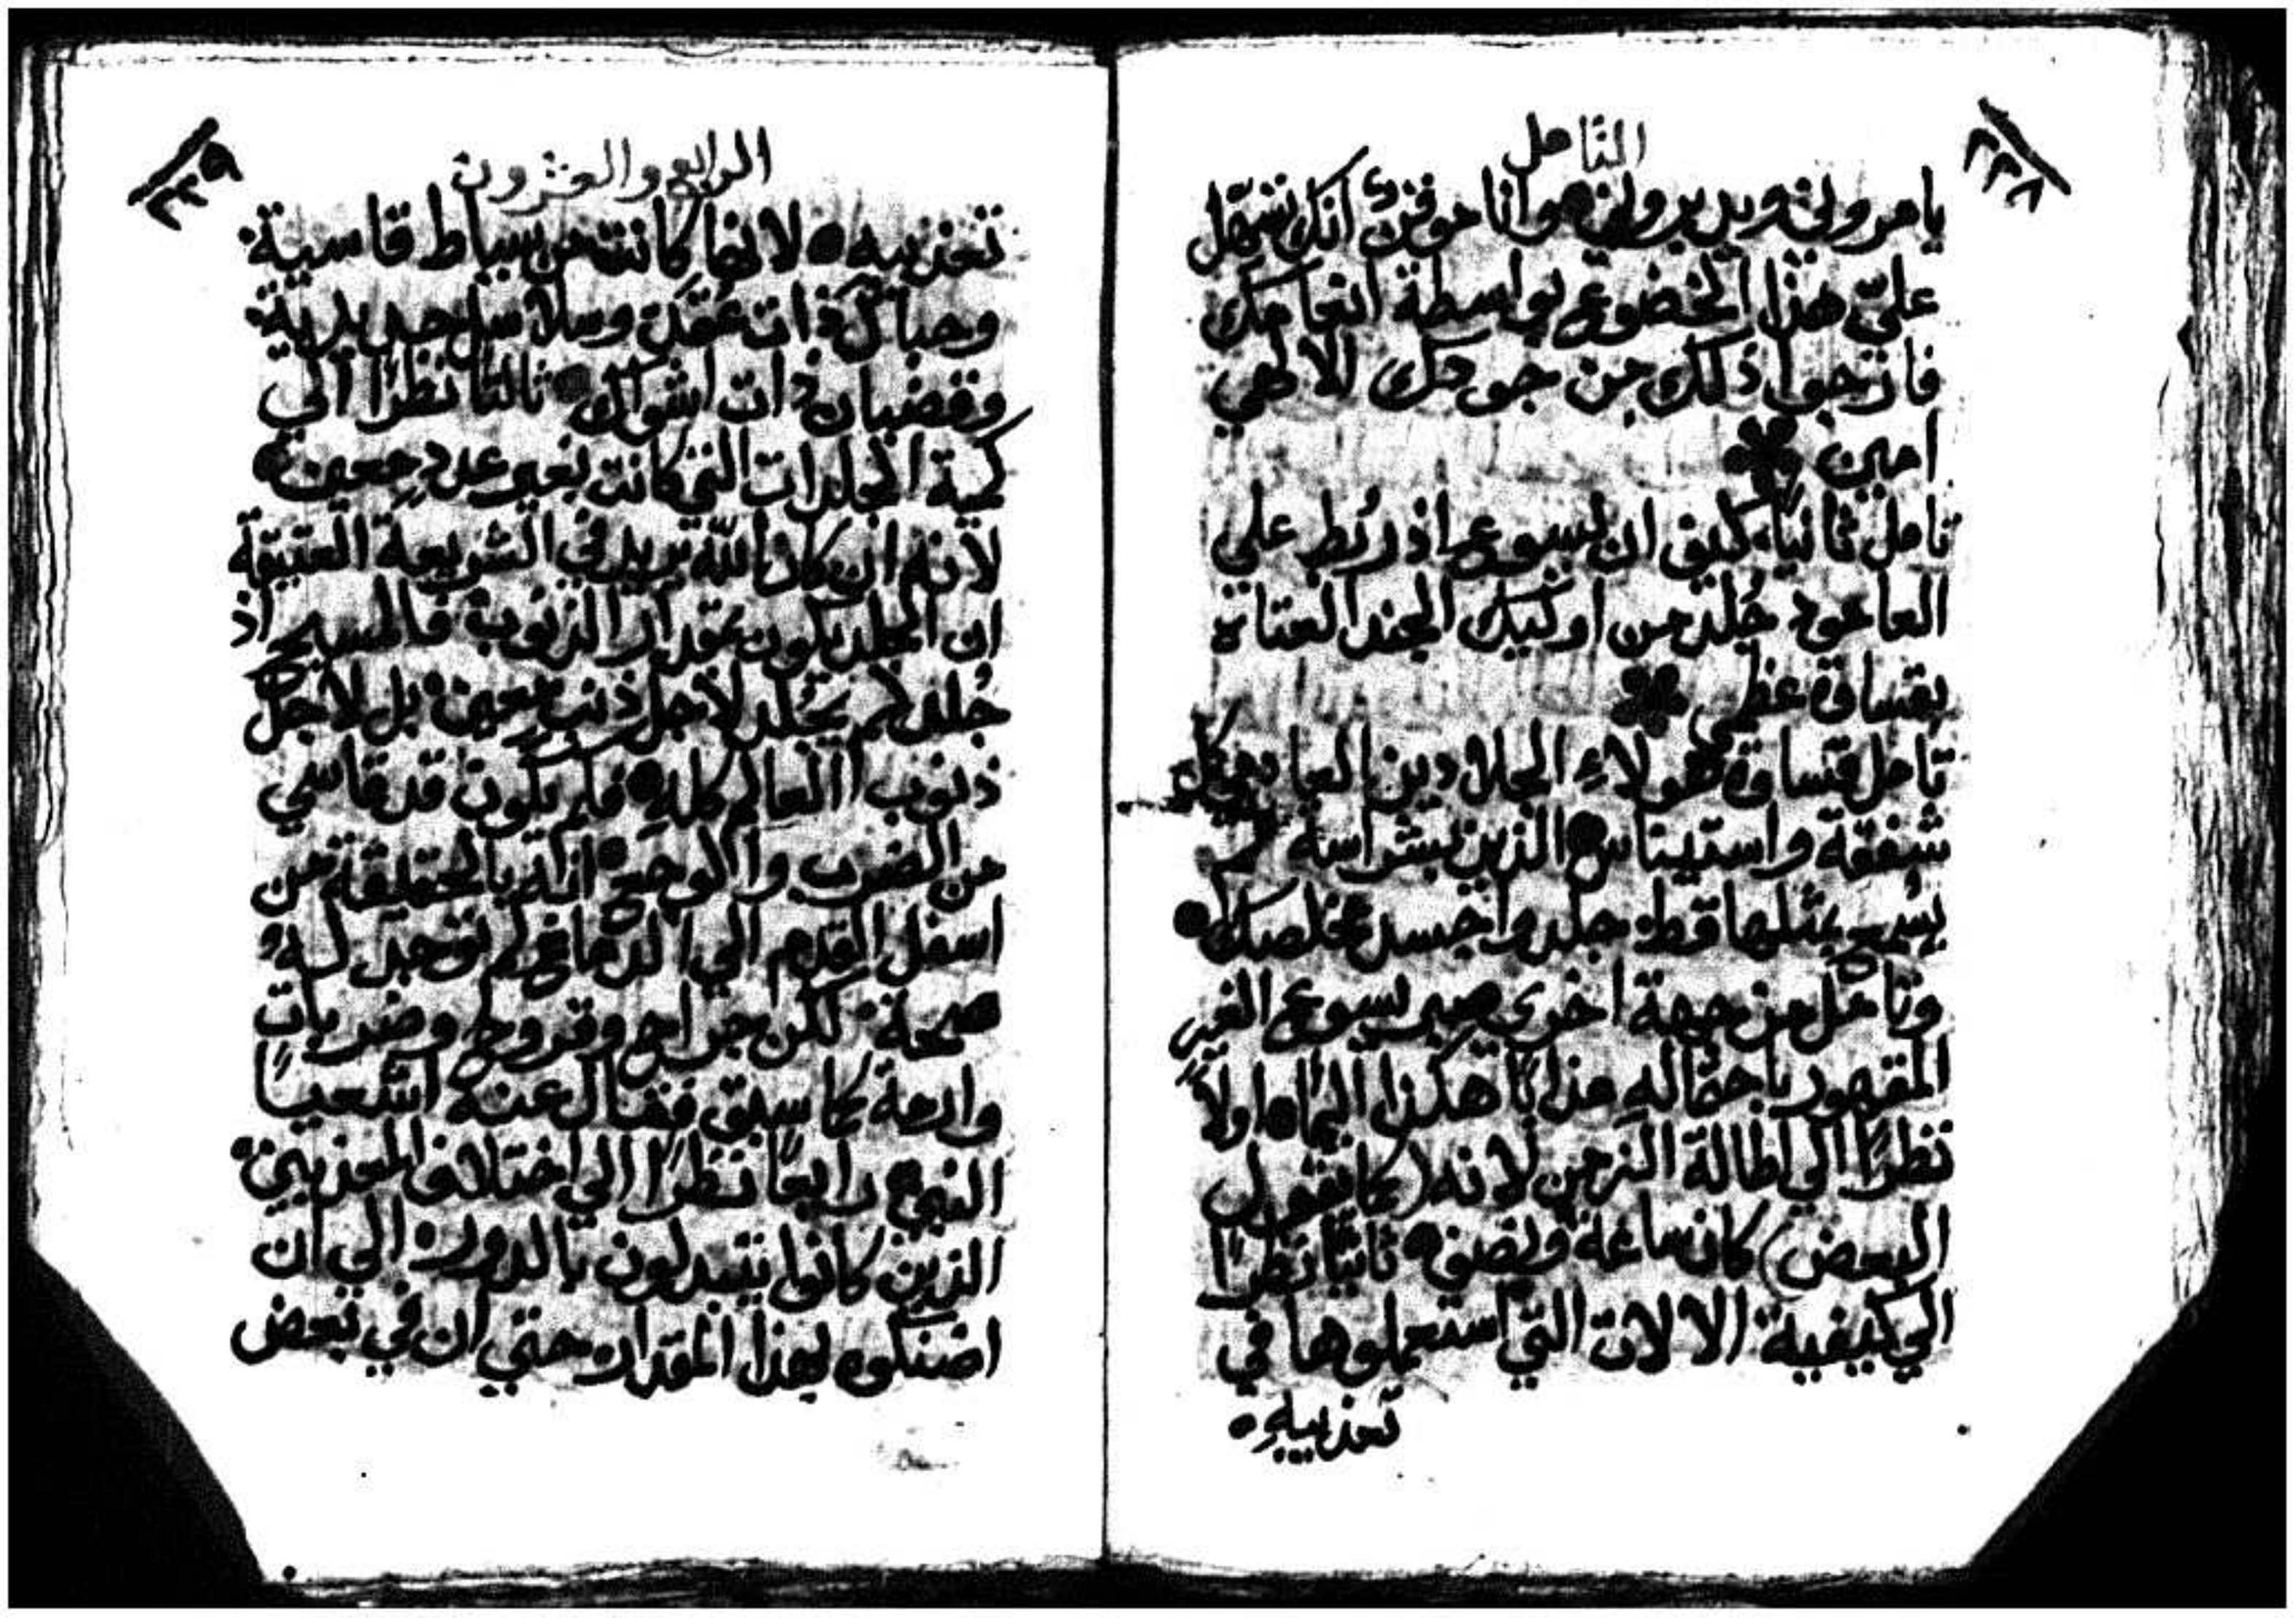 التامل
٢٣٨
يامروني ويدبروني وانا موقن انك تسهل
عليّ هذا الخضوع بواسطة انعامك
فارتجوا ذلك من جودك الالهي
امين
تامل ثانياً كيف ان يسوع اذ رُبط علي
العامود جُلد من اوليك الجند العتاة
بقساوة عظمي
تامل قساوة هولاء الجلادين العادمي كل
شفقة واستيناس الذين بشراسه لم
يسمع بمثلها قط جلدوا جسد مخلصك
وتامل من جهة اخري صبر يسوع الغير
المقهور باحتماله عذابًا هكذا اليمًا اولاً
نظرًا الي اطالة الزمن لانه (كما يقول
البعض) كان ساعة ونصف ثانيًا نظرًا
الي كيفية الالات التي استعملوها في
تعذيبه
الرابع والعشرون
٢٣٩
تعذيبه لانها كانت من سياط قاسية
وحبال ذات عُقد وسلاسل حديدية
وقضبان ذات اشواك ثالثا نظرًا الي
كمية الجلدات التي كانت بغير عددٍ معين
لانه ان كان الله يريد في الشريعة العتيقة
ان الجلد يكون بمقدار الذنوب فالمسيح اذ
جُلد لم يُجلد لاجل ذنب معين بل لاجل
ذنوب العالم كله فكم يكون قد قاسي
من الضرب والاوجاع انه بالحقيقة من
اسفل القدم الي الدماغ لم توجد له
صحة لكن جراح وقروح وضربات
وارمة كما سبق فقال عنه اشعيا
النبي رابعًا نظرًا الي اختلاف المعذبين
الذين كانوا يتبدلون بالدور الي ان
اضنكوه بهذا المقدار حتي ان في بعض